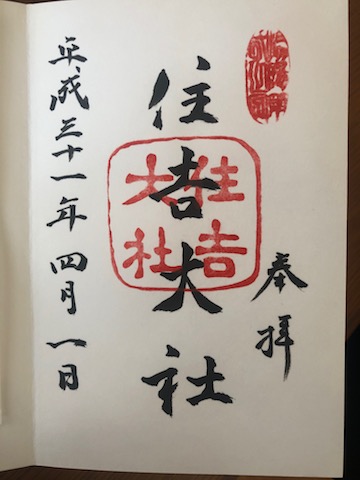 奉拝
住吉大社
住吉
大社
平成三十一年四月一日